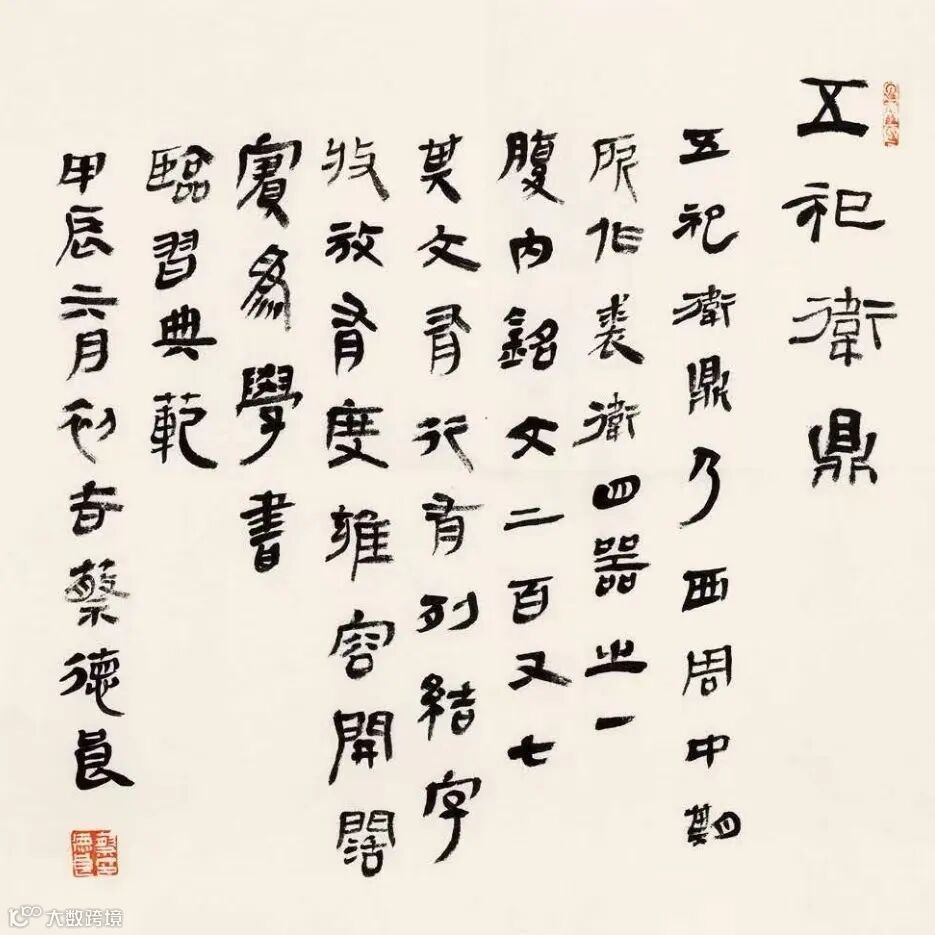 五祀衛鼎
五祀衛鼎乃西周中期
所作裘衛四器之一
腹内銘文二百又七
其文有行有列結字
收放有度雍容開闊
實為學書
臨習典範
甲辰六月初吉蔡德良
大数跨境